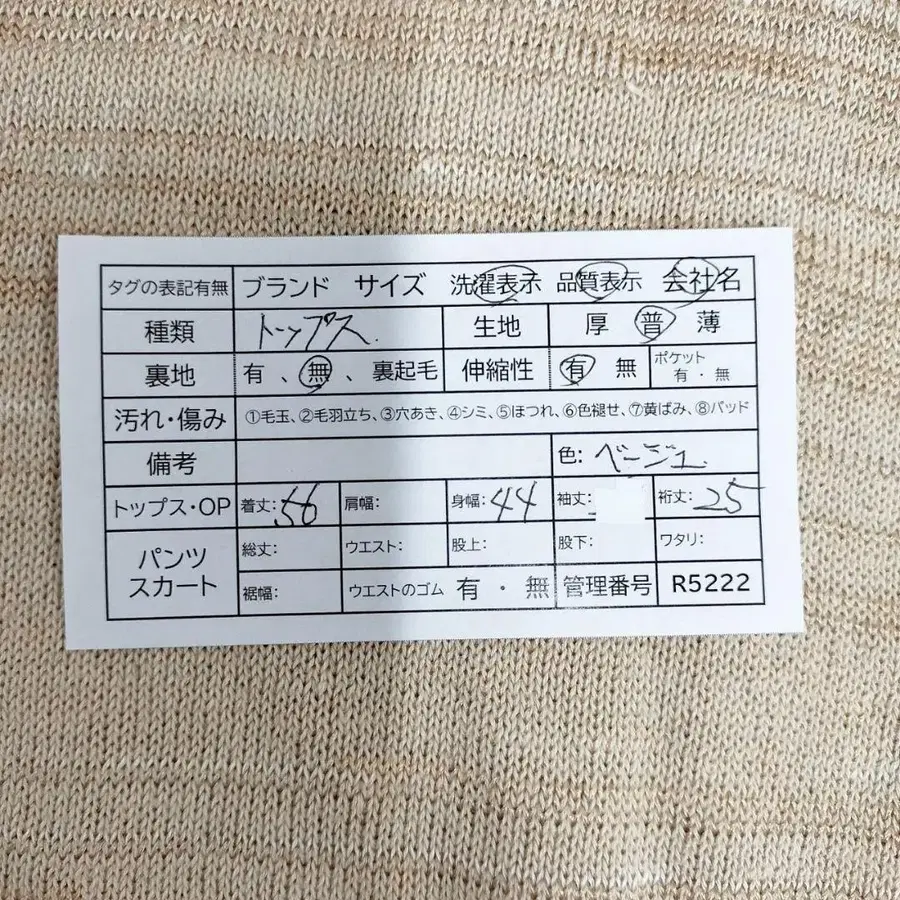 タグの表記有無 ブランド サイズ 洗濯表示 品質表示 会社名
種類 トップス. 生地 厚 普 薄
裏地 有 、無 、裏起毛 伸縮性 有 無 ポケット 有 ・ 無
汚れ・傷み ①毛玉、②毛羽立ち、③穴あき、④シミ、⑤ほつれ、⑥色褪せ、⑦黄ばみ、⑧パッド
備考 色: ベージュ.
トップス・OP 着丈:56 肩幅: 身幅:44 袖丈: 裄丈:25
パンツ スカート 総丈: ウエスト: 股上: 股下: ワタリ:
裾幅: ウエストのゴム 有 ・ 無 管理番号 R5222